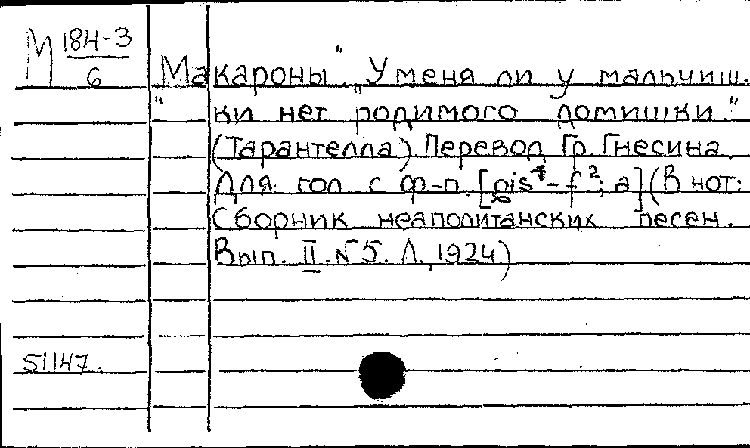 М 184-3
6
"Макароны" „У меня ли у мальчиш.
ки нет родимого домишки."
(Тарантелла) Перевод Гр. Гнесина
Для гол с ф-п. [gis¹-f²; a] (В нот:
Сборник неаполитанских песен.
Вып. II. N 5. Л., 1924)
51147.